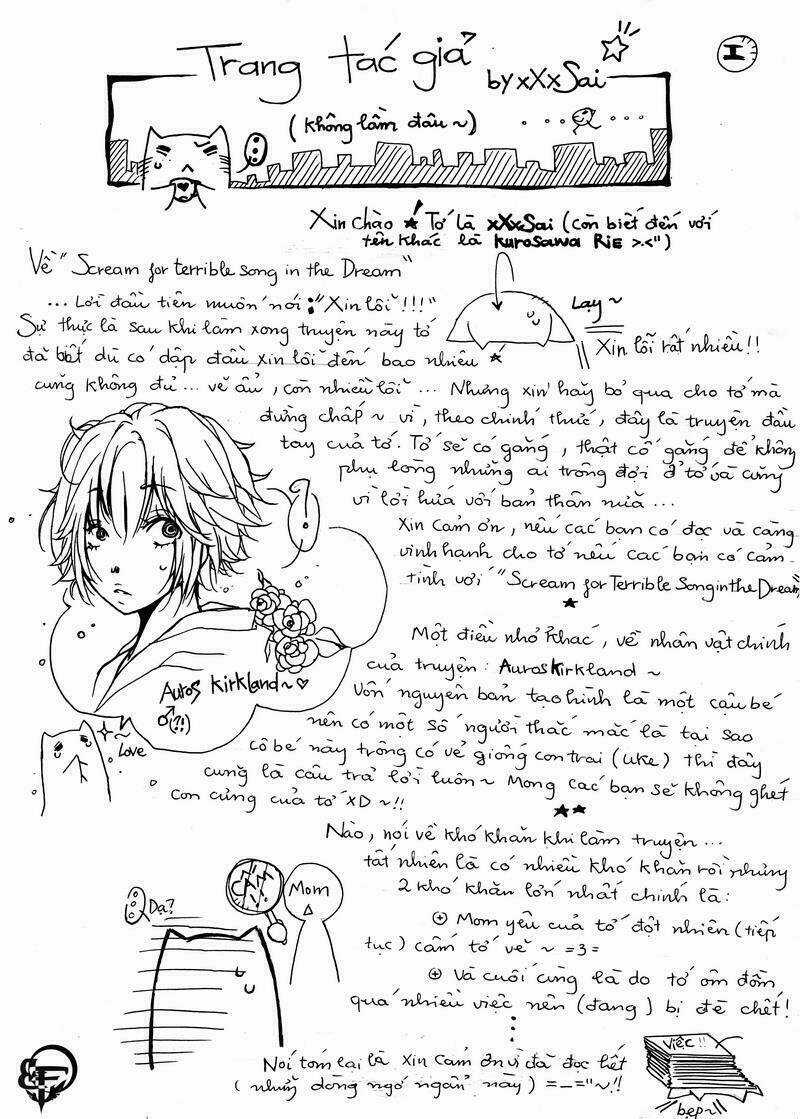 I
Trang tác giả
by xXxSai
(Không lầm đâu ~)
Xin chào ★! Tớ là xXxSai (còn biết đến với
tên khác là Kurosawa Rie >.<")
Về "Scream for terrible song in the Dream"
... Lời đầu tiên muốn nói: "Xin lỗi!!!"
Lạy ~
Xin lỗi rất nhiều!!
Sự thực là sau khi làm xong truyện này tớ
đã biết dù có dập đầu xin lỗi đến bao nhiêu
cũng không đủ... vẽ ẩu, còn nhiều lỗi... Nhưng xin hãy bỏ qua cho tớ mà
đừng chấp ~ vì, theo chính thức, đây là truyện đầu
tay của tớ. Tớ sẽ cố gắng, thật cố gắng để không
phụ lòng những ai trông đợi ở tớ và cũng
vì lời hứa với bản thân nữa...
Xin cảm ơn, nếu các bạn có đọc và càng
vinh hạnh cho tớ nếu các bạn có cảm
tình với "Scream for Terrible Song in the Dream"
Một điều nhỏ khác, về nhân vật chính
của truyện: Auros Kirkland ~
Auros Kirkland ~ ♡
♂(?!)
Vốn nguyên bản tạo hình là một cậu bé
nên có một số người thắc mắc là tại sao
cô bé này trông có vẻ giống con trai (uke) thì đây
cũng là câu trả lời luôn ~ Mong các bạn sẽ không ghét
con cưng của tớ XD ~!!
~ Love
Nào, nói về khó khăn khi làm truyện...
tất nhiên là có nhiều khó khăn rồi nhưng
2 khó khăn lớn nhất chính là:
⊕ Mom yêu của tớ đột nhiên (tiếp
tục) cấm tớ vẽ ~ =3=
⊕ Và cuối cùng là do tớ ôm đồm
quá nhiều việc nên (đang) bị đè chết!
Dạ?
CẤM!
Mom
Nói tóm lại là xin cảm ơn vì đã đọc hết
(những dòng ngớ ngẩn này) =_="~!!
Việc!!
bẹp~